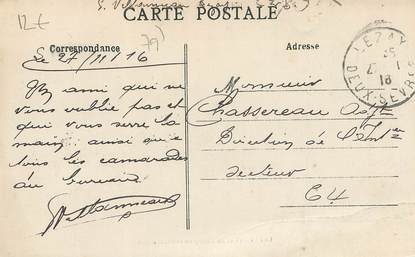 12 €
79)
CARTE POSTALE
Correspondance
Adresse
LEZAY
DEUX-SEVRES
Le 27/11/16
Un ami qui ne
vous oublie pas et
qui vous serre la
main ainsi qu'a
tous les camarades
du bureau
Monsieur
Chassereau
Direction de l'Int
Secteur
64